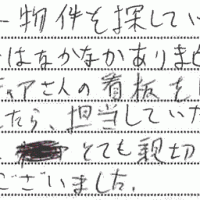 物件を探してい
はなかなかありま
ャアさんの看板を
たら、担当していた
とても親切
ございました。